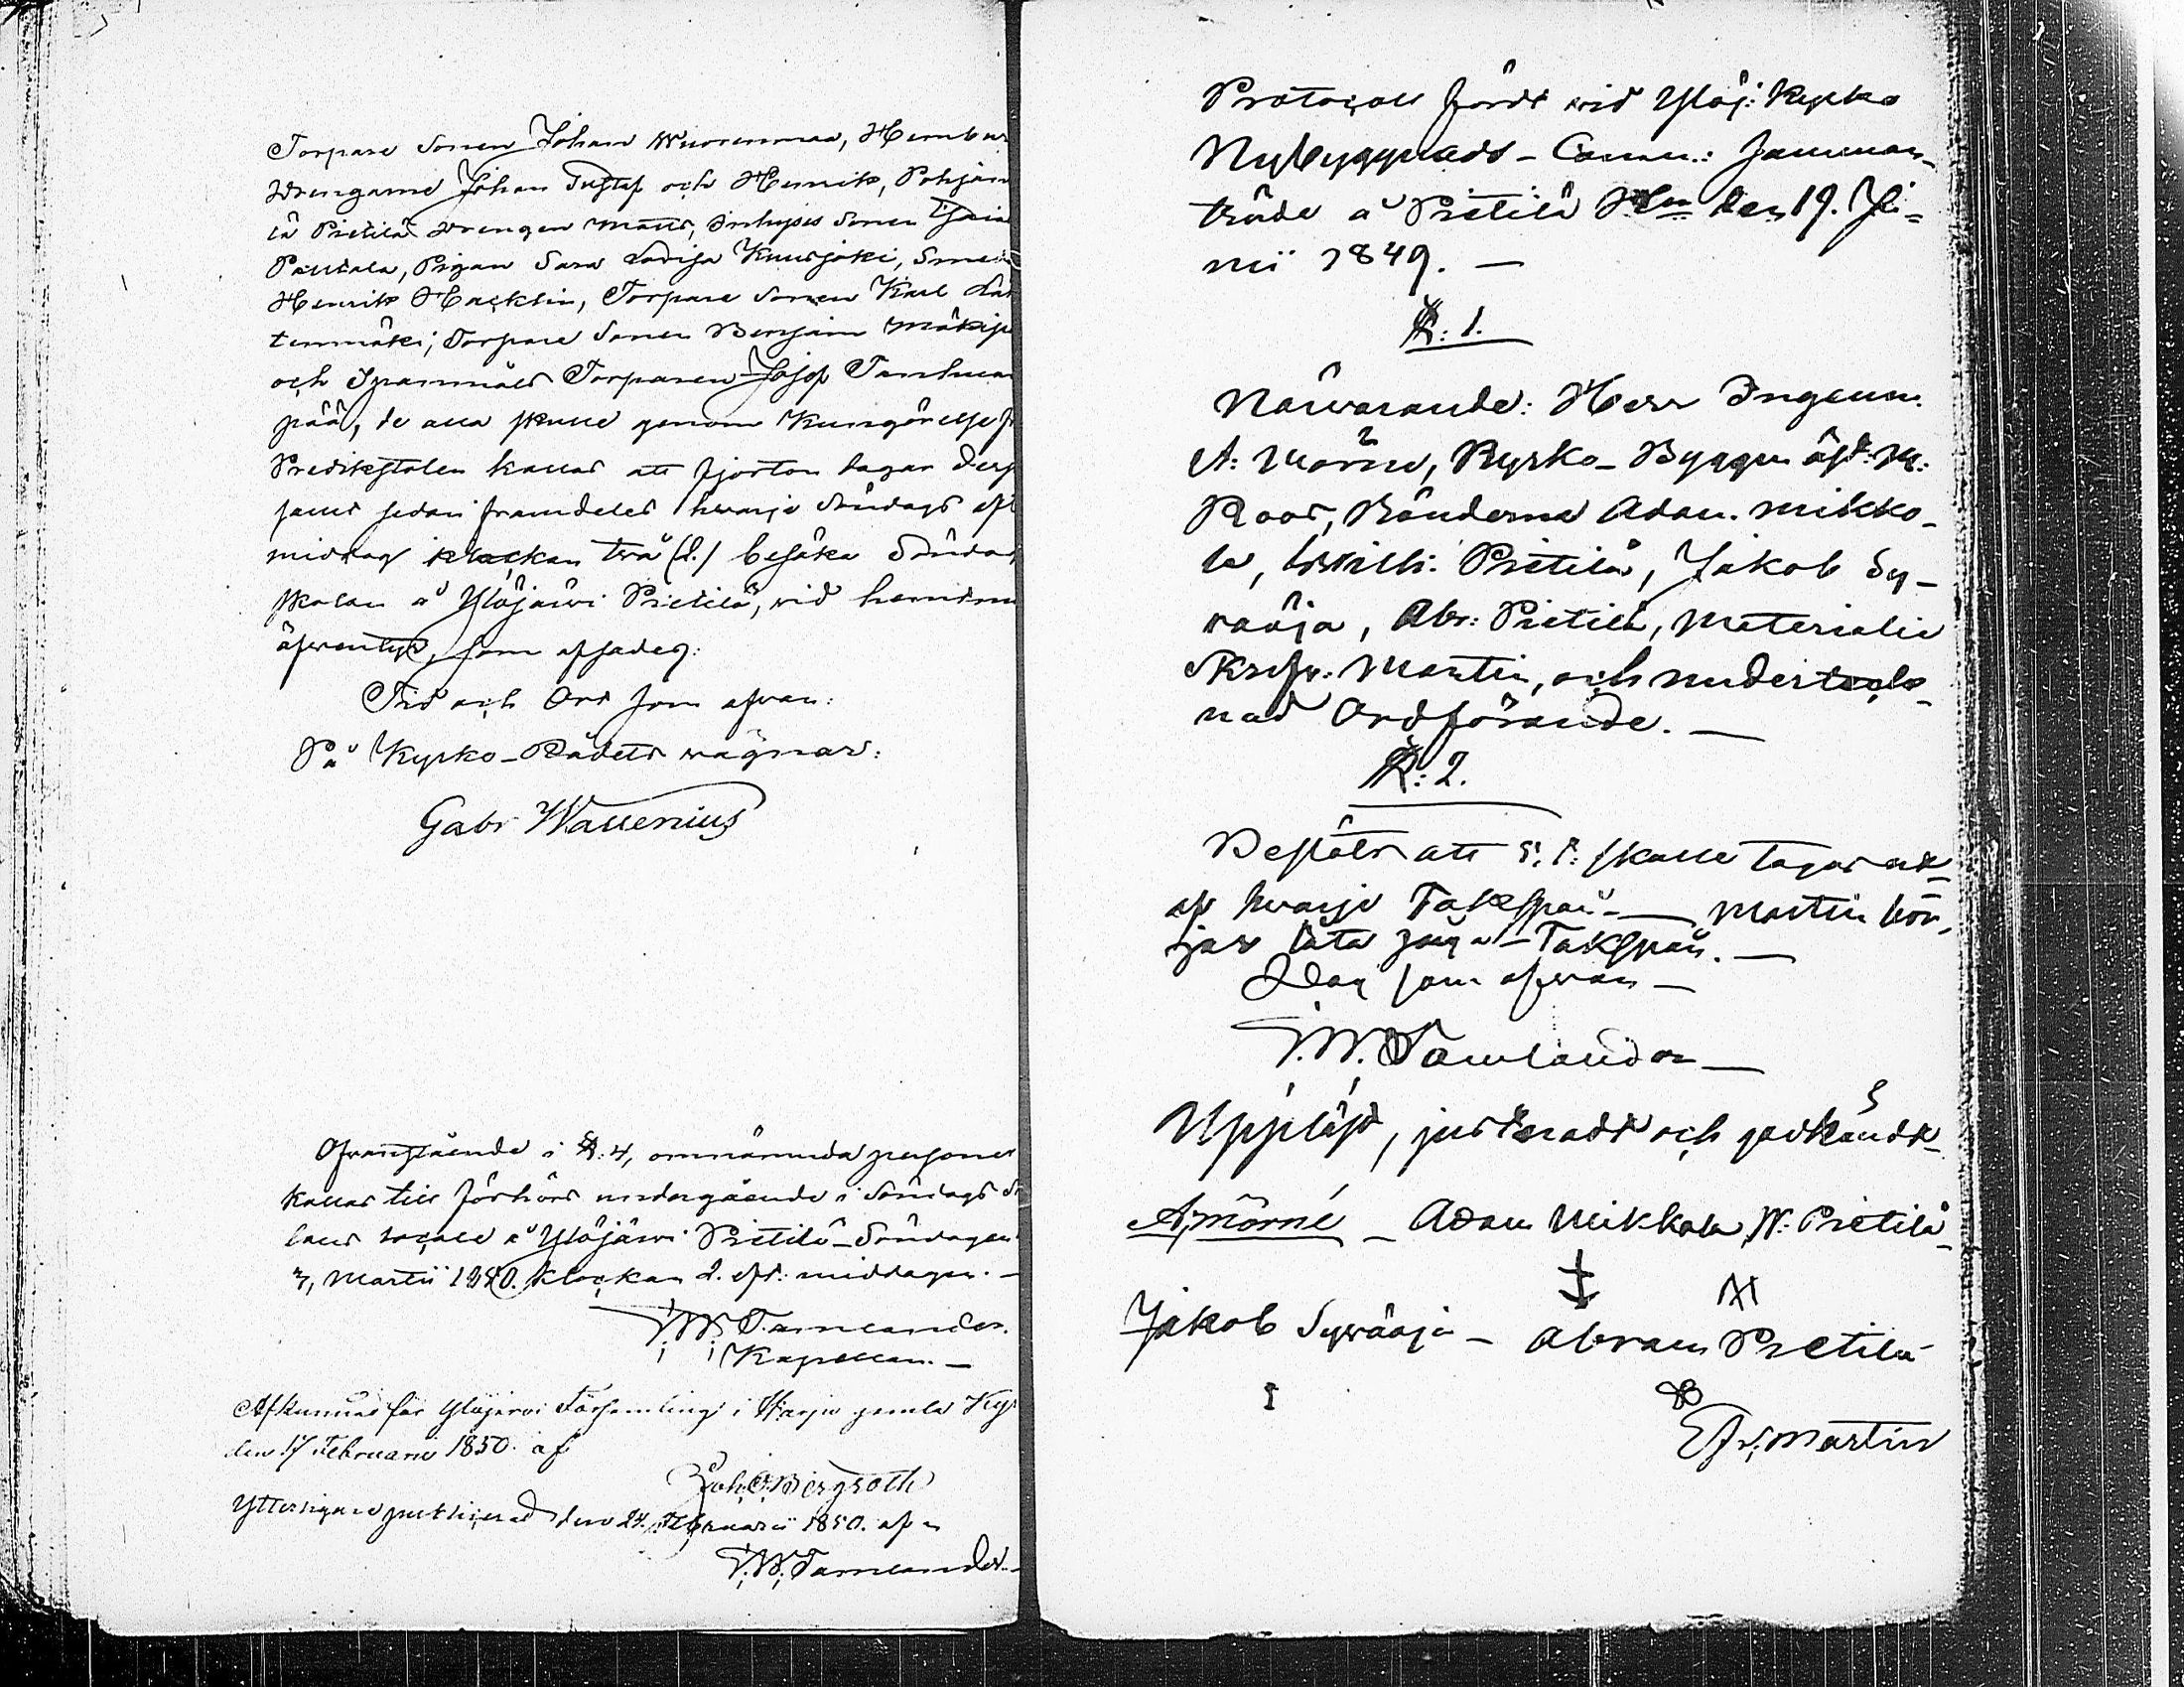 Torpare Sonen Johan Wuorenmaa, Hembur
Drengarne Johan Gustaf och Henrik, Pohjan
lä Pietilä Drengen Matts, Inhyses Sonen
Pauhala, Pigan Sara Lovisa Kuusjoki, Smed
Henrik Hacklin, Torpare Sonen Karl Lat
tenmäki; Torpare Sonen Benjam Mäkip
och Spannmåls Torparen Josef Tanhuan
pää, de alla skulle genom Kungörelse fr
Predikstolen kallas att fjorton dagar der
samt sedan framdeles hwarje Söndags eft
middag klockan två (2.) besöka Söndags
skolan å Ylöjärwi Pietilä, wid hemtnin
äfwentyr, som afsades:
Tid och Ort som ofwan:
På Kyrko-Rådets wägnar:
Gabr Wallenius
Ofwanstående i §: 4, omnämnda personer
kallas till förhörs undergående i Söndags S
lans locale å Ylöjärwi Pietilä Söndagen
3, Martii 1850. klockan 2. eft: middagen. —
J. W. Tamlander.
Kapellan. —
Afkunnas för Ylöjärvi Församling i Harju gamla Kyr
den 17 Februarii 1850. af
Joh. O. Bergroth
Ytterligare publicerad den 24. Februarii 1850. af
J. W. Tamlander. —
Protocoll fördt wid Ylöj: Kyrko
Nybyggnads-Comm.: Samman-
träde å Pietilä Hn den 19. Ju-
nii 1849. —
§: 1.
Närwarande: Herr Ingenn.
A: Mörne, Kyrko-Byggm äst: M:
Roos, Bönderna Adam Mikko-
la, Wilh: Pietilä, Jakob Sy-
wäoja, Abr: Pietilä, Materialie
Skrifv: Martin, och underteck-
nad Ordförande. —
§: 2.
Beslöts att skulle tagas ut-
af hwarje Takspån — Martin bör-
jar låta såga Takspån. —
Dag som ofwan —
J. W. Tamlander —
Uppläst, justeradt och godkändt
A: Mörné — Adam Mikkola, W: Pietilä
Jakob Sywäoja — Abram Pietilä
Fr: Martin